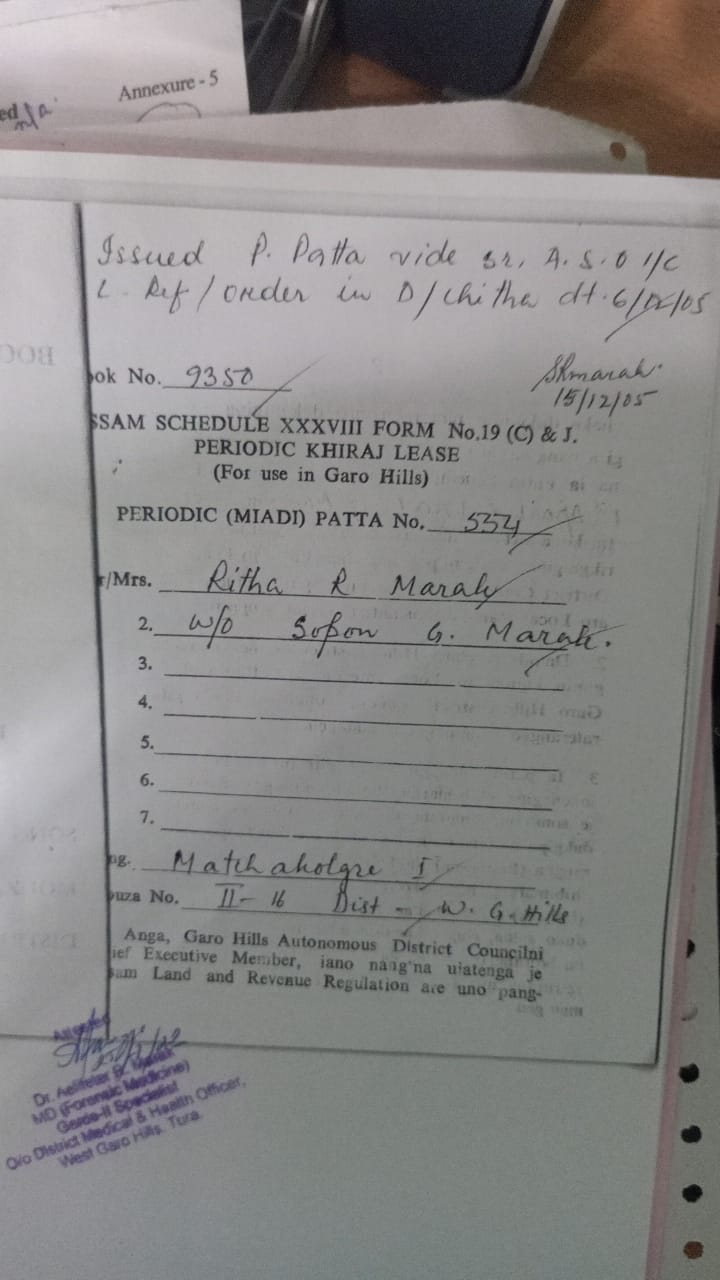 Annexure - 5
ed n/a
Issued P. Patta vide sr. A.S.O I/C
L. Ref/order in D/Chitha dt. 6/12/05
ook No. 9350
15/12/05
SSAM SCHEDULE XXXVIII FORM No.19 (C) & J.
PERIODIC KHIRAJ LEASE
(For use in Garo Hills)
PERIODIC (MIADI) PATTA No.
r/Mrs. Ritha R Marak
2. w/o Sofon G. Marak.
3.
4.
5.
6.
7.
ng. Matchakolgre I
ouza No. II- 16 Dist - W. G. Hills
Anga, Garo Hills Autonomous District Councilni
ief Executive Member, iano nang'na u'atenga je
sam Land and Revenue Regulation are uno pang-
Attested
Dr.
MD (Forensic Medicine)
Garde-II Specialist
O/o District Medical & Health Officer,
West Garo Hills, Tura